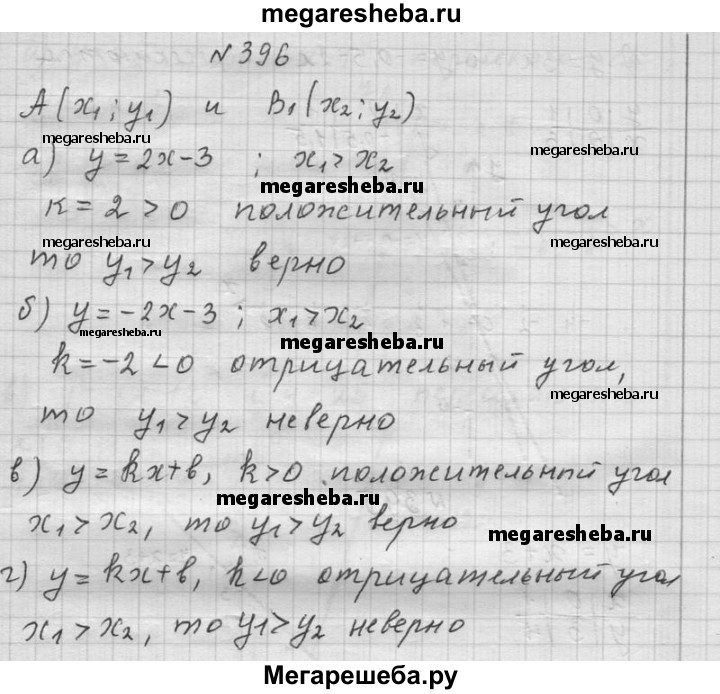 megaresheba.ru
№396
A(x₁; y₁) и B₁(x₂; y₂)
megaresheba.ru
megaresheba.ru
а) y = 2x-3 ; x₁ > x₂
megaresheba.ru
к = 2 > 0 положительный угол
то y₁ > y₂ верно
б) y = -2x-3 ; x₁ > x₂
megaresheba.ru
megaresheba.ru
k = -2 < 0 отрицательный угол,
megaresheba.ru
то y₁ > y₂ неверно
в) y = kx+в, k>0. положительный угол
megaresheba.ru
x₁ > x₂, то y₁ > y₂ верно
megaresheba.ru
г) y = kx+в, k<0 отрицательный угол
x₁ > x₂, то y₁ > y₂ неверно
Мегарешеба.ру